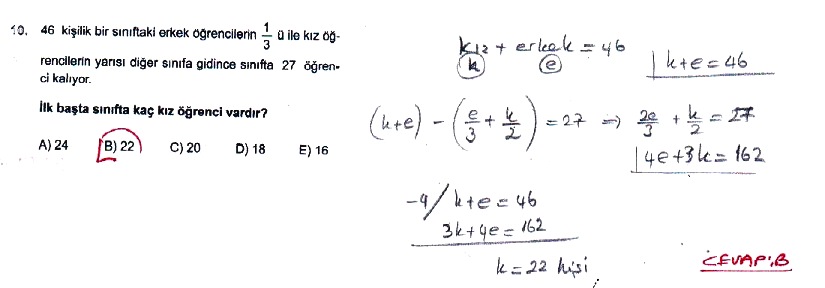 10. 46 kişilik bir sınıftaki erkek öğrencilerin 1/3 ü ile kız öğ-
rencilerin yarısı diğer sınıfa gidince sınıfta 27 öğren-
ci kalıyor.
İlk başta sınıfta kaç kız öğrenci vardır?
A) 24 B) 22 C) 20 D) 18 E) 16
kız + erkek = 46
k e
k+e = 46
(k+e) - (e/3 + k/2) = 27 => 2e/3 + k/2 = 27
4e+3k = 162
-4/ k+e = 46
3k+4e = 162
k = 22 kişi
CEVAP:B